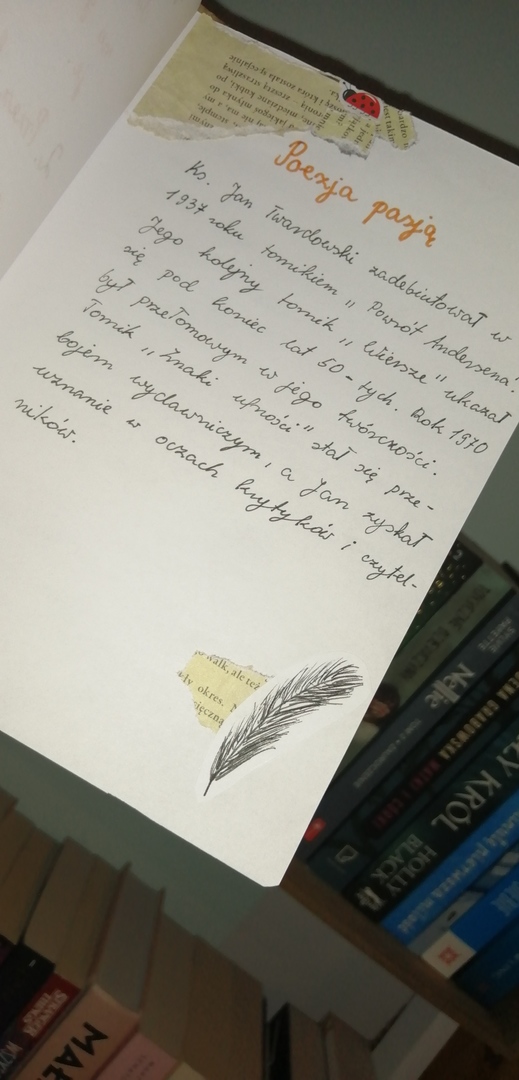 Poezja pasją
Ks. Jan Twardowski zadebiutował w
1937 roku tomikiem „Powrót Andersena".
Jego kolejny tomik „Wiersze" ukazał
się pod koniec lat 50-tych. Rok 1970
był przełomowym w jego twórczości.
Tomik „Znaki ufności" stał się prze-
bojem wydawniczym, a Jan zyskał
uznanie w oczach krytyków i czytel-
ników.
walk, ale też
okres.
Nelle
HOLLY
BLACK
KRÓL
MAŁ